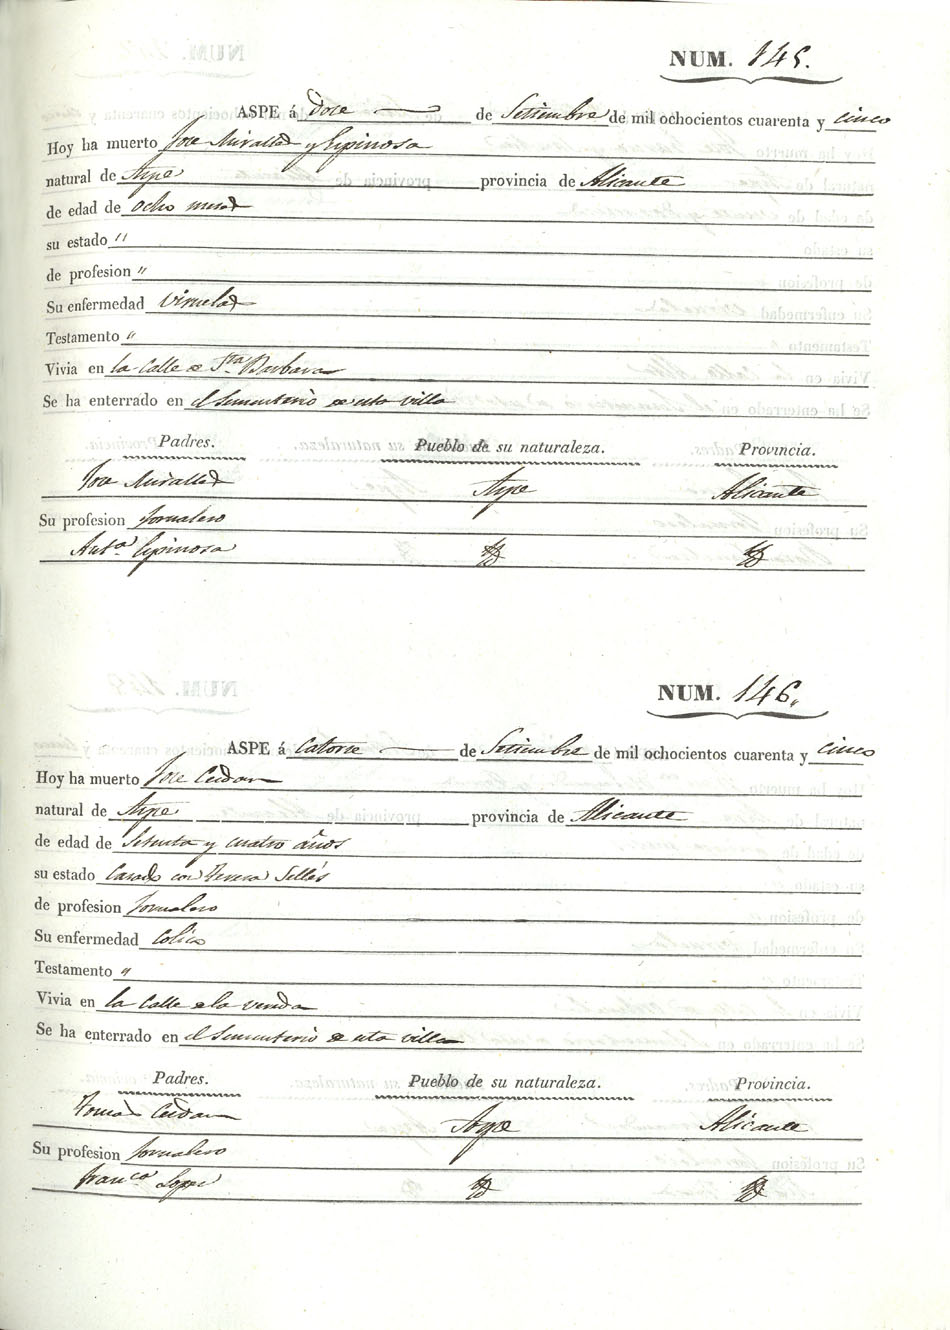 NUM. 145.
ASPE á Doce de Setiembre de mil ochocientos cuarenta y cinco
Hoy ha muerto Jose Miralles y Espinosa
natural de Aspe provincia de Alicante
de edad de ocho meses
su estado "
de profesion "
Su enfermedad Viruelas
Testamento "
Vivia en la Calle de Sta. Barbara
Se ha enterrado en el Sementerio de esta villa
Padres. Pueblo de su naturaleza. Provincia.
Jose Miralles Aspe Alicante
Su profesion Jornalero
Anta. Espinosa
NUM. 146.
ASPE á Catorce de Setiembre de mil ochocientos cuarenta y cinco
Hoy ha muerto Jose
natural de Aspe provincia de Alicante
de edad de Setenta y cuatro años
su estado Casado con Teresa Sellés
de profesion Jornalero
Su enfermedad Colico
Testamento "
Vivia en la Calle de la
Se ha enterrado en el Sementerio de esta villa
Padres. Pueblo de su naturaleza. Provincia.
Tomas Aspe Alicante
Su profesion Jornalero
Franca. Lopez